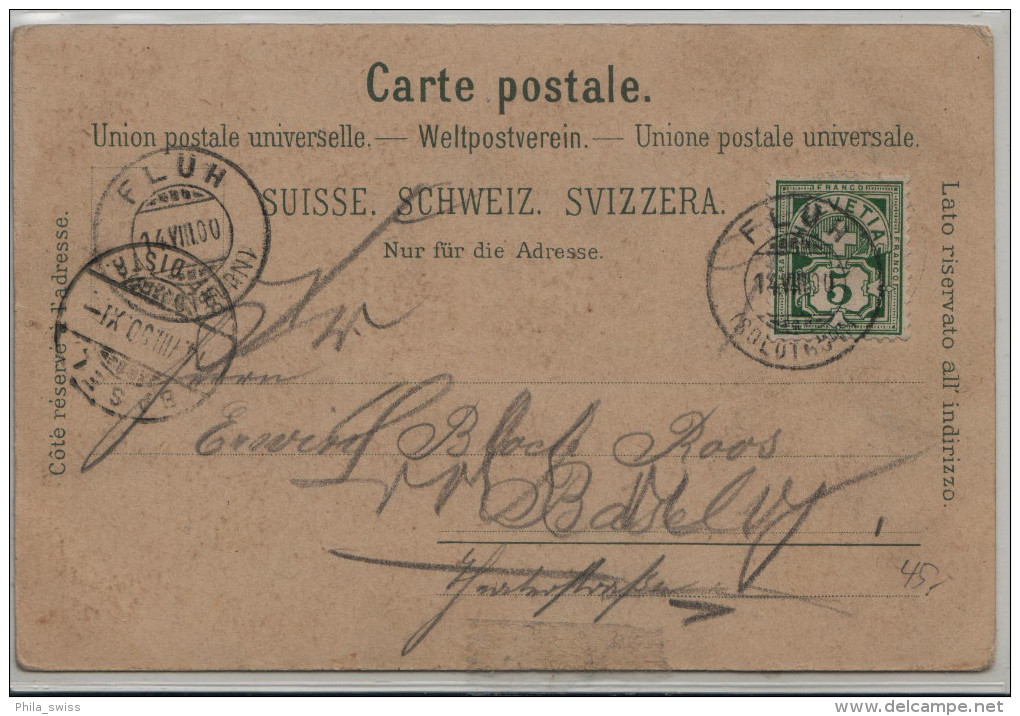 Carte postale.
Union postale universelle. — Weltpostverein. — Unione postale universale.
SUISSE. SCHWEIZ. SVIZZERA.
Nur für die Adresse.
Côté réservé à l'adresse.
Lato riservato all' indirizzo.
FLÜH
14.VIII.00
FRANCO
HELVETIA
FRANCO
5
FLÜH
14.VIII.00
(SOLOTHURN)
BASEL
DISTR.
VIII.00.XI-
Herrn
Bloch Roos
Basel
Theaterstraße
45.-
Phila_swiss
www.delcampe.net